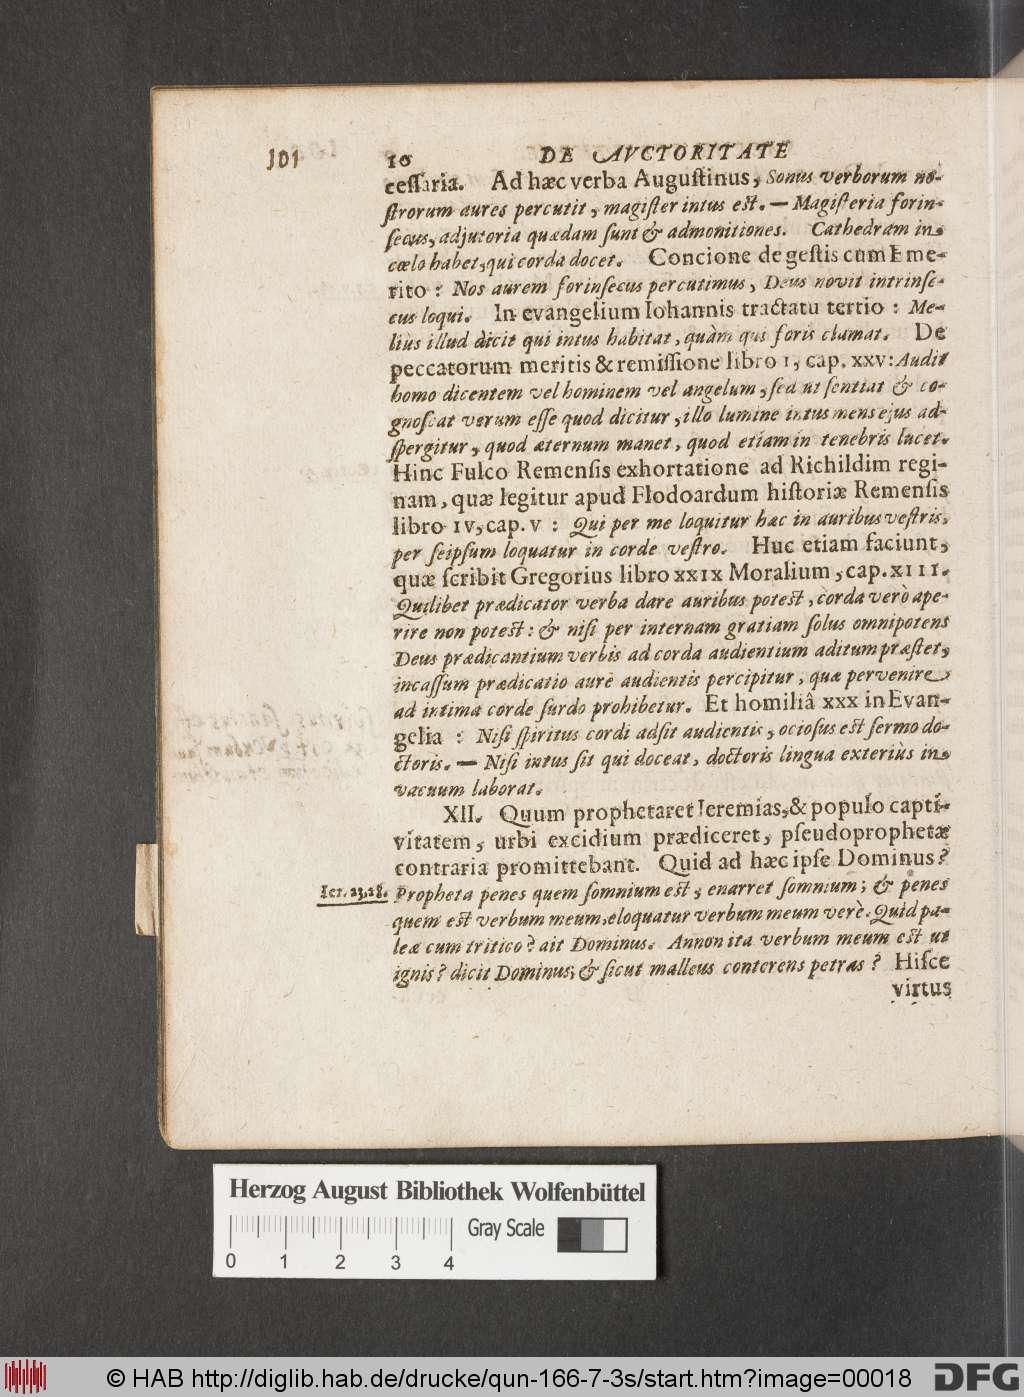 101
10 DE AVCTORITATE
ceſſaria. Ad hæc verba Auguſtinus, Sonus verborum no-
ſtrorum aures percutit, magiſter intus est. — Magiſteria forin-
ſecus, adjutoria quædam ſunt & admonitiones. Cathedram in
cœlo habet, qui corda docet. Concione de geſtis cum Eme-
rito : Nos aurem forinſecus percutimus, Deus novit intrinſe-
cus loqui. In evangelium Iohannis tractatu tertio : Me-
liùs illud dicit qui intus habitat, quàm qui foris clamat. De
peccatorum meritis & remiſſione libro I, cap. XXV: Audit
homo dicentem vel hominem vel angelum, ſed ut ſentiat & co-
gnoſcat verum eſſe quod dicitur, illo lumine intus mens ejus ad-
ſpergitur, quod æternum manet, quod etiam in tenebris lucet.
Hinc Fulco Remenſis exhortatione ad Richildim regi-
nam, quæ legitur apud Flodoardum hiſtoriæ Remenſis
libro IV, cap. V : Qui per me loquitur hæc in auribus veſtris,
per ſeipſum loquatur in corde veſtro. Huc etiam faciunt,
quæ ſcribit Gregorius libro XXIX Moralium, cap. XIII.
Quilibet prædicator verba dare auribus potest, corda verò ape-
rire non potest: & niſi per internam gratiam ſolus omnipotens
Deus prædicantium verbis ad corda audientium aditum præſtet,
incaſſum prædicatio aure audientis percipitur, quæ pervenire
ad intima corde ſurdo prohibetur. Et homiliâ XXX in Evan-
gelia : Niſi ſpiritus cordi adſit audientis, ocioſus est ſermo do-
ctoris. — Niſi intus ſit qui doceat, doctoris lingua exteriùs in
vacuum laborat.
XII. Quum prophetaret Ieremias, & populo capti-
vitatem, urbi excidium prædiceret, pſeudoprophetæ
contraria promittebant. Quid ad hæc ipſe Dominus?
Ier. 23,28. Propheta penes quem ſomnium est, enarret ſomnium; & penes
quem est verbum meum, eloquatur verbum meum verè. Quid pa-
leæ cum tritico? ait Dominus. Annon ita verbum meum est ut
ignis? dicit Dominus; & ſicut malleus conterens petras? Hiſce
virtus
Herzog August Bibliothek Wolfenbüttel
Gray Scale
0 1 2 3 4
© HAB http://diglib.hab.de/drucke/qun-166-7-3s/start.htm?image=00018
DFG